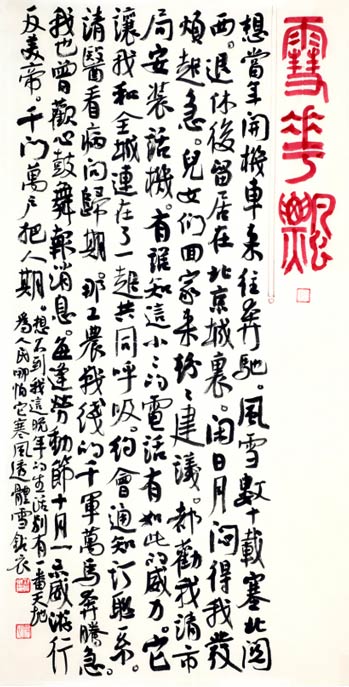 雪花飘
想當年開機車來往奔馳。風雪數十載塞北関
西。退休後留居在北京城裏。閑日月悶得我發
煩起急。兒女们回家来紛々建议。都勸我請市
局安装話機。有誰知這小々的電话有如此的威力。它
讓我和全城連在了一起共同呼吸。约會通知订联系。
清醫看病问歸期。那工農战线的千軍萬馬奔騰急。
我也曾歡心鼓舞報消息。每逢勞動節十月一示威游行
反美帝。千门萬户把人期。想不到我這晚年的生活别有一番天地
為人民哪怕它寒風透體雪鋪衣